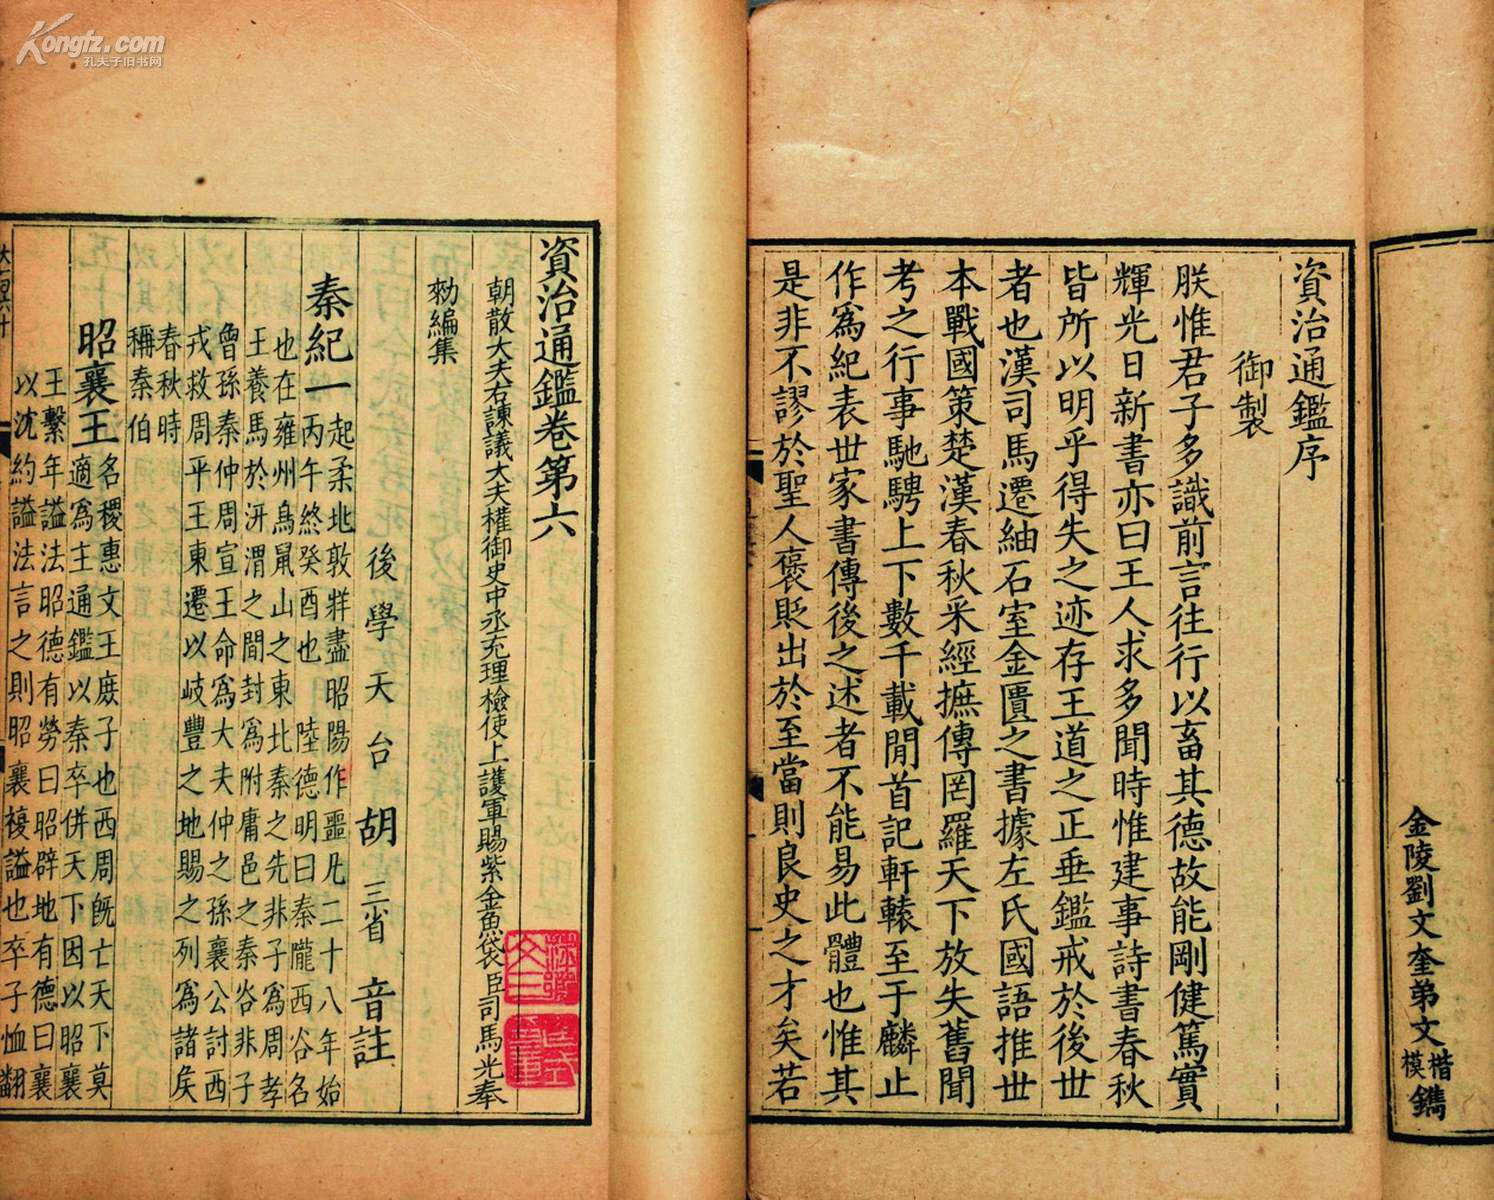 Kongfz.com
孔夫子旧书网
金陵劉文奎弟文楷模鐫
資治通鑑序
御製
朕惟君子多識前言往行以畜其德故能剛健篤實
輝光日新書亦曰王人求多聞時惟建事詩書春秋
皆所以明乎得失之迹存王道之正垂鑑戒於後世
者也漢司馬遷紬石室金匱之書據左氏國語推世
本戰國策楚漢春秋采經摭傳罔羅天下放失舊聞
考之行事馳騁上下數千載閒首記軒轅至于麟止
作爲紀表世家書傳後之述者不能易此體也惟其
是非不謬於聖人褒貶出於至當則良史之才矣若
資治通鑑卷第六
朝散大夫右諫議大夫權御史中丞充理檢使上護軍賜紫金魚袋臣司馬光奉
勑編集
後學天台胡三省音註
秦紀一
起柔兆敦牂盡昭陽作噩凡二十八年始
丙午終癸酉也 陸德明曰秦隴西谷名
也在雍州鳥鼠山之東北秦之先非子爲周孝
王養馬於汧渭之間封爲附庸邑之秦谷非子
曾孫秦仲周宣王命爲大夫仲之孫襄公討西
戎救周平王東遷以岐豐之地賜之列爲諸矦
春秋時
稱秦伯
昭襄王
名稷惠文王庶子也西周旣亡天下莫
適爲主通鑑以秦卒併天下因以昭襄
王繫年謚法昭德有勞曰昭辟地有德曰襄
以沈約謚法言之則昭襄複謚也卒子恤翻